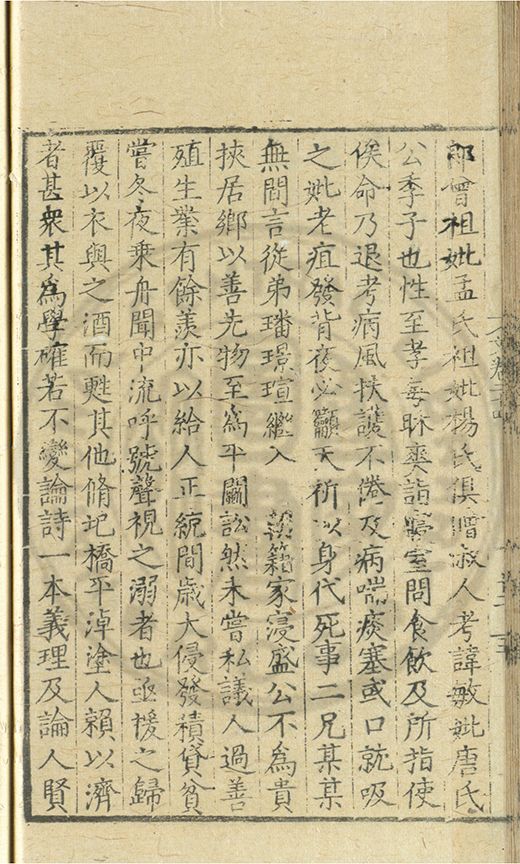 郎曾祖妣孟氏祖妣楊氏俱贈淑人考諱敏妣唐氏
公季子也性至孝每昧爽詣寢室問食飲及所指使
俟命乃退考病風扶護不倦及病喘痰塞或口就吸
之妣老疽發背夜必籲天祈以身代死事二兄某某
無間言從弟璠璟瑄繼入 禁籍家寖盛公不為貴
挾居鄉以善先物至為平鬬訟然未嘗私議人過善
殖生業有餘羨亦以給人正統間歲大侵發積貸貧
嘗冬夜乗舟聞中流呼號聲視之溺者也亟援之歸
覆以衣與之酒而甦其他脩圯橋平淖塗人賴以濟
者甚衆其為學確若不變論詩一本義理及論人賢